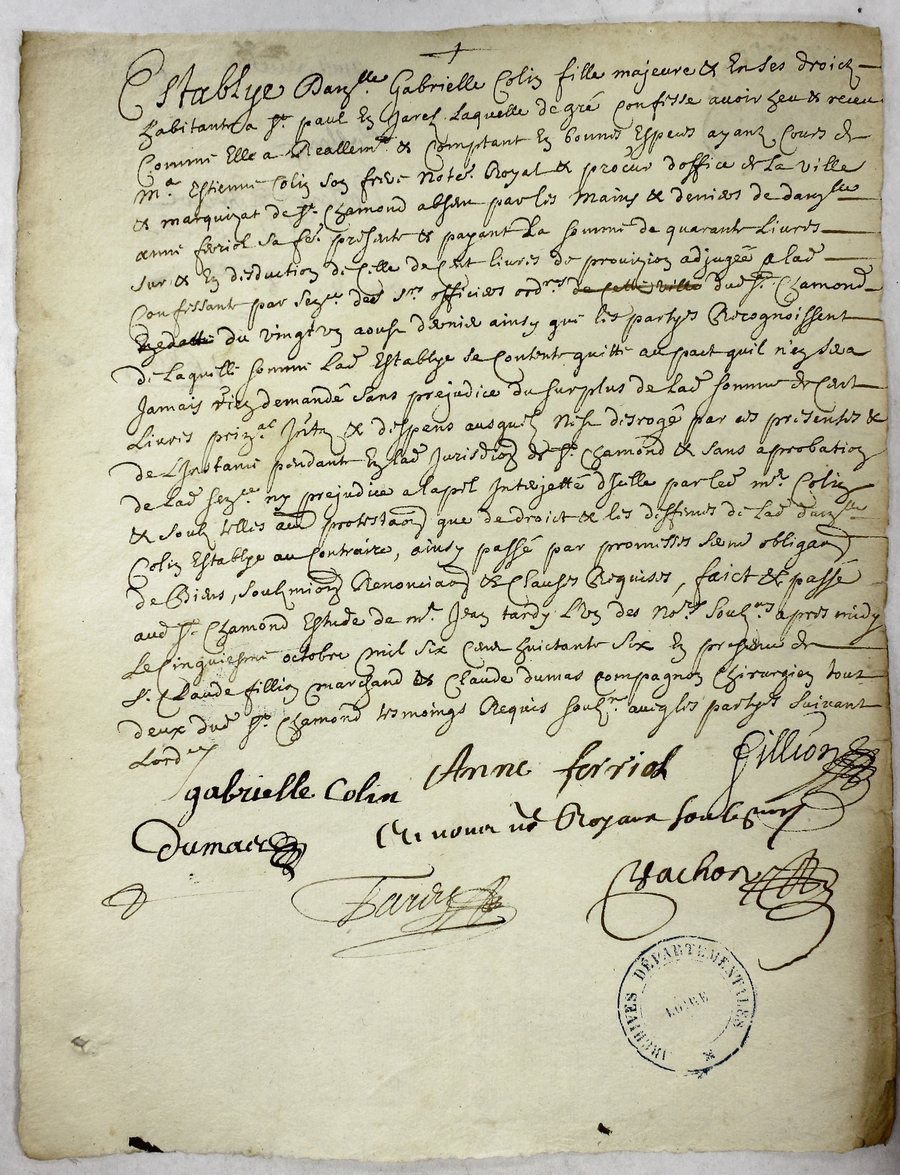 Establye Dam.lle Gabrielle Colin fille majeure & En ses droicts
habitante a S.t paul En Jarez Laquelle de gré Confesse avoir heu & receu
Comme Elle a Reallem.t & Comptant En bonnes Espeues ayant Cours de
M.e Estienne Colin son frere Note.e Royal & procur d'office de La ville
& marquizat de S.t Chamond absent par les Mains & deniers de dam.lle
anne ferriol sa fe. presente & payant La somme de quarante Livres
sur & En desduction de Celle de Cent livres de provizion adjugée a lad
Confessant par Sen.ce des S.rs officiers ord.res de Celle Ville dud S.t Chamond
En datte du vingt un aoust dernier ainsy que les partyes Recognoissent
de Laquelle somme Lad Establye se Contente quitte au pact quil n'en sera
Jamais rien demandé sans prejudice du surplus de Lad somme de Cent
Livres prin.al Jn.tz & despens ausquelz N'est desrogé par ces presentes &
de L'Instance pendante En lad Jurisd.ion de S.t Chamond & sans aprobation
de Lad Sen.ce ny prejudice a lapel Interjetté d'icelle par led m.e Colin
& soubz telles au protesta.on que de droict & les deffences de Lad dam.lle
Colin Establye au Contraire, ainsy passé par promesses serm obliga.on
de Biens, soubmion Renoncia.on & Clauses Requises, faict & passé
aud S.t Chamond Estude de m.e Jean tardy L'un des No.res soubz.nes apres midy
Le Cinquiesme octobre mil six Cent huictante six En presence de
S.r Claude fillion marchand & Claude dumas Compagnon Chirurgien tout
deux dud S.t Chamond tesmoings Requis soubz.nes avec les partyes suivant
Lord.ce
gabrielle Colin
Anne ferriol
fillion
Dumas
Et nous no.res Royaux soubsignes
Tardy
Vachon
ARCHIVES DÉPARTEMENTALES
LOIRE